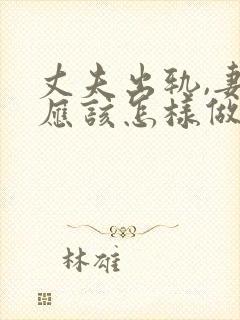 丈夫出轨,妻
应该怎样做
林雄